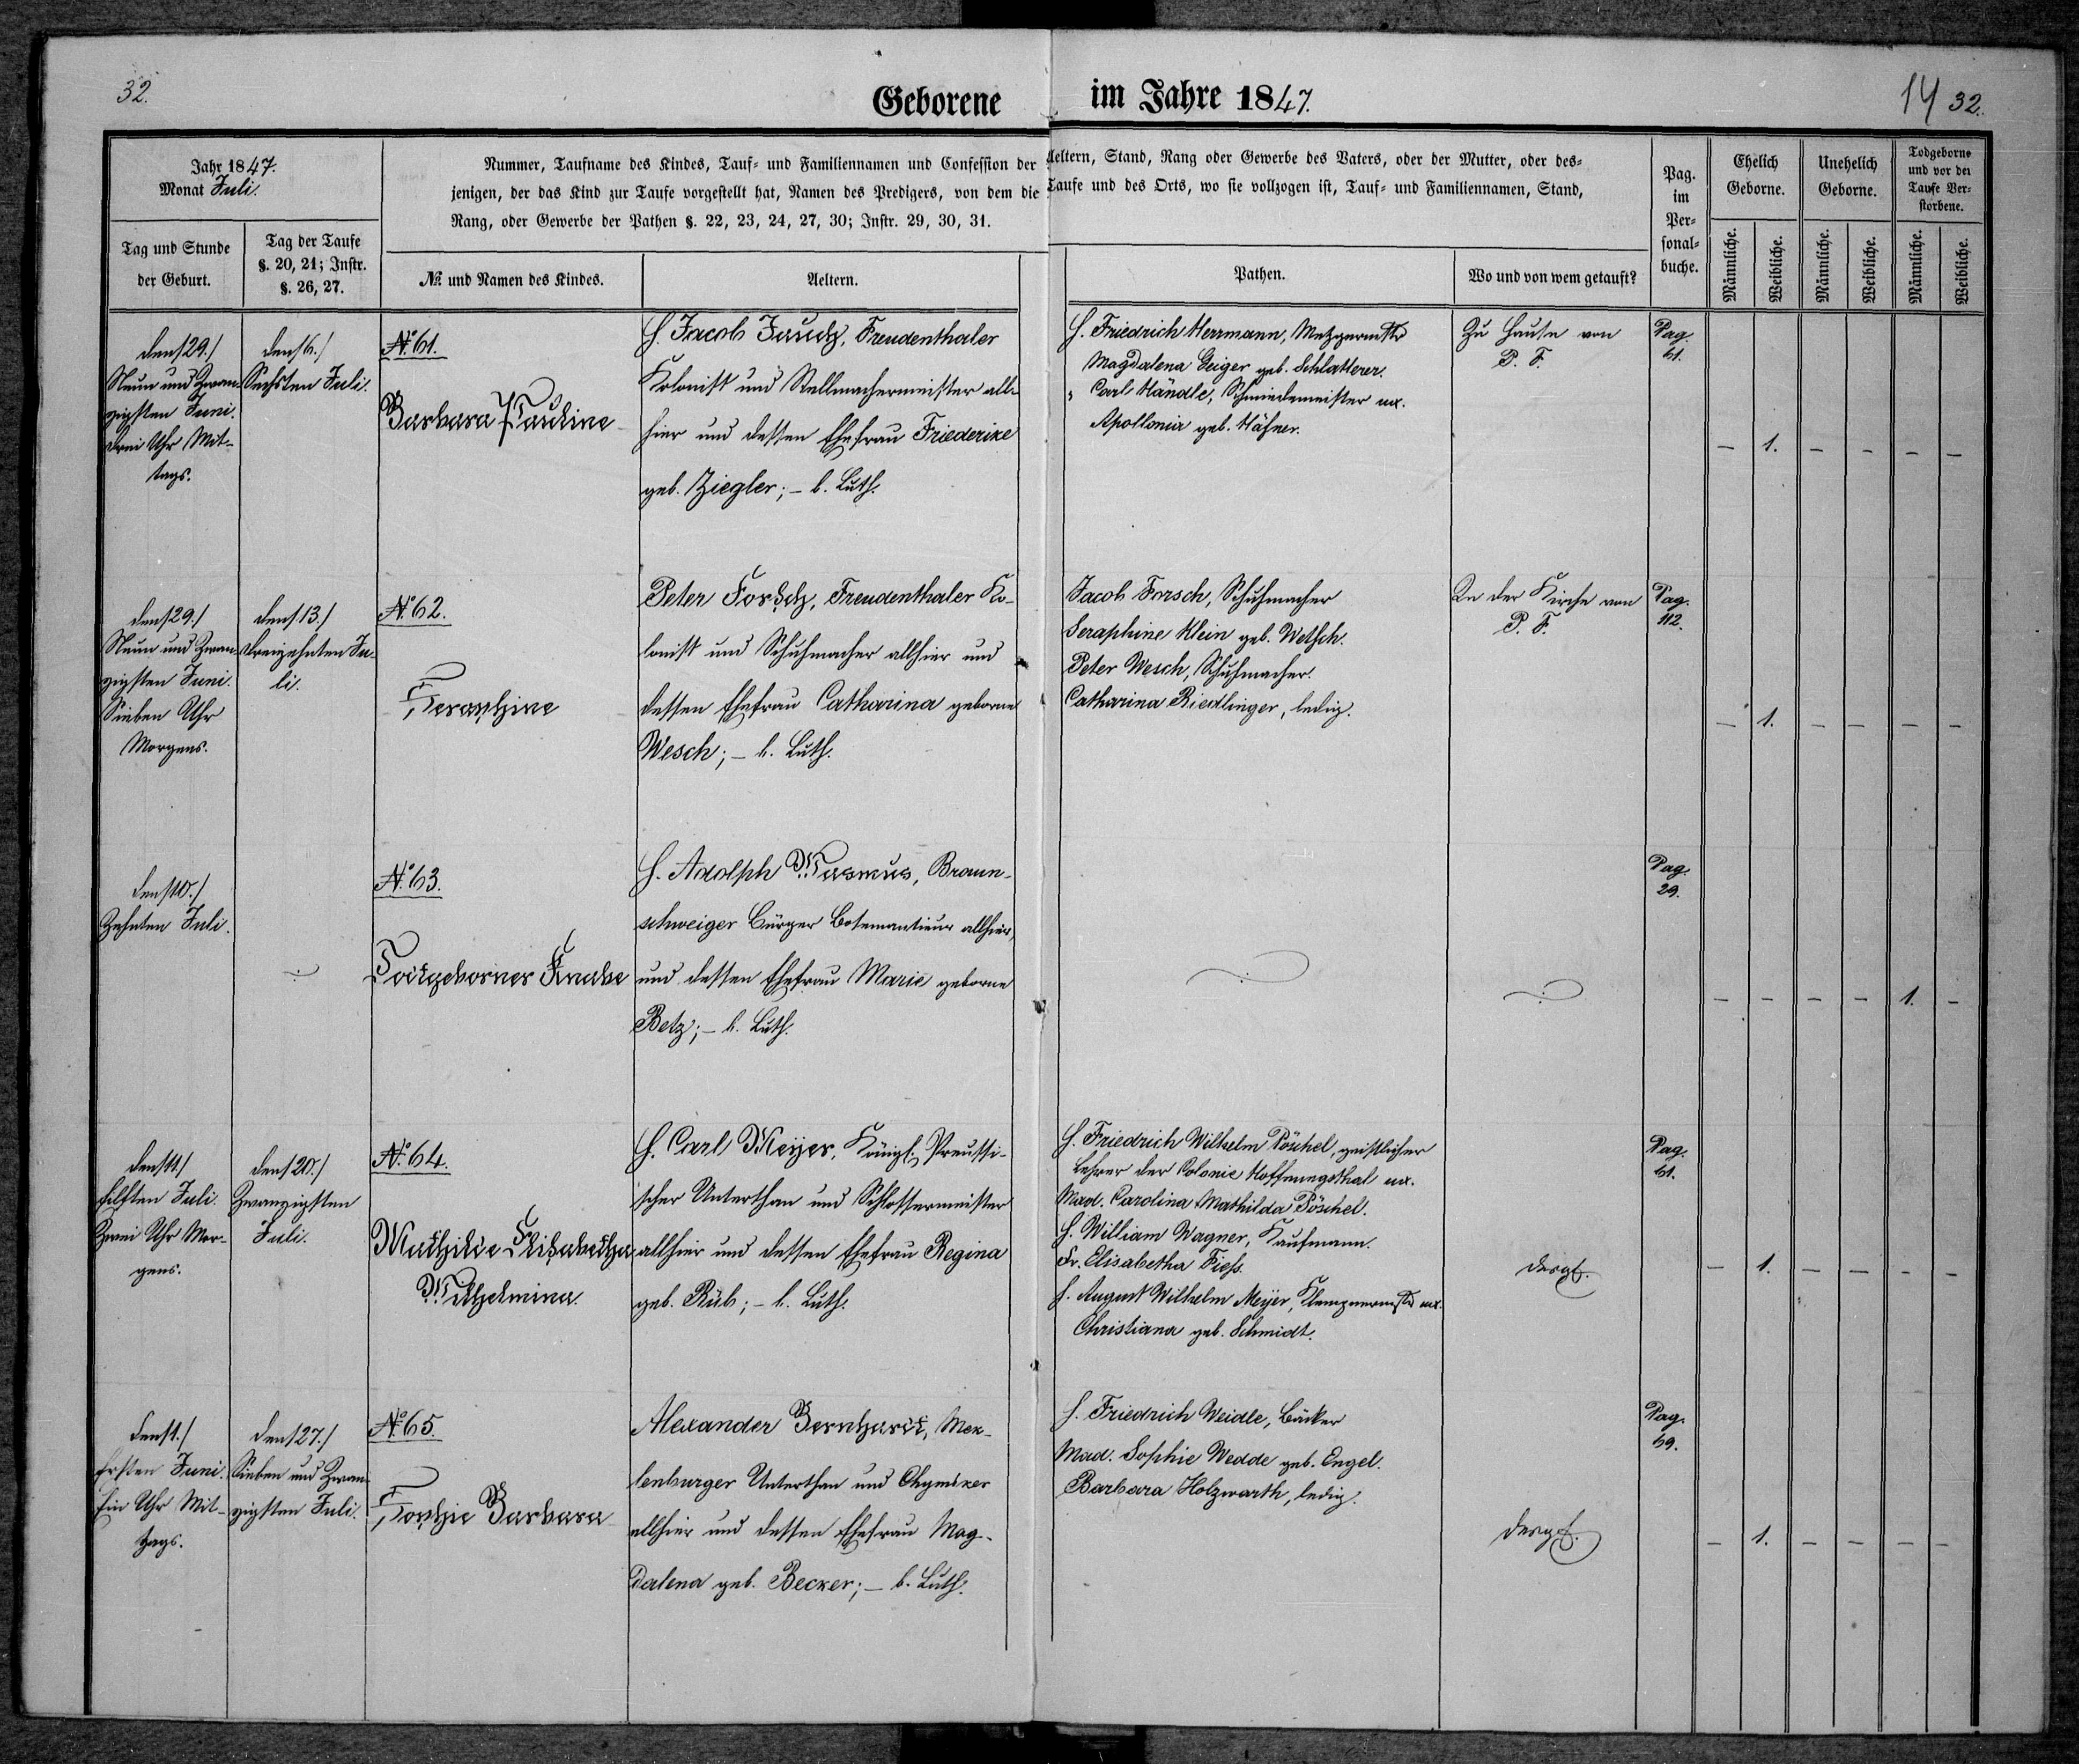 32.
Geborene im Jahre 1847.
14 32.
Jahr 1847.
Monat Juli.
Nummer, Taufname des Kindes, Tauf- und Familiennamen und Confession der Aeltern, Stand, Rang oder Gewerbe des Vaters, oder der Mutter, oder des-
jenigen, der das Kind zur Taufe vorgestellt hat, Namen des Predigers, von dem die Taufe und des Orts, wo sie vollzogen ist, Tauf- und Familiennamen, Stand,
Rang, oder Gewerbe der Pathen §. 22, 23, 24, 27, 30; Instr. 29, 30, 31.
Tag und Stunde
der Geburt.
Tag der Taufe
§. 20, 21; Instr.
§. 26, 27.
№ und Namen des Kindes.
Aeltern.
Pathen.
Wo und von wem getauft?
Pag.
im
Per-
sonal-
buche.
Ehelich
Geborne.
Unehelich
Geborne.
Todgeborne
und vor der
Taufe Ver-
storbene.
Männliche.
Weibliche.
Männliche.
Weibliche.
Männliche.
Weibliche.
den 29./
Neun und Zwan-
zigsten Juni.
Drei Uhr Mit-
tags.
den 6./
Sechsten Juli.
N° 61.
Barbara Pauline
H. Jacob Jauch, Freudenthaler
Kolonist und Stellmachermeister all-
hier und dessen Ehefrau Friederike
geb. Ziegler; – b. Luth.
H. Friedrich Herrmann, Metzgermstr
Magdalena Geiger geb. Schlatterer.
" Carl Händle, Schmiedemeister ux.
Apollonia geb. Häfner.
Zu Hause von
P. F.
Pag.
61.
– 1. – – – –
den 29./
Neun und Zwan-
zigsten Juni.
Sieben Uhr
Morgens.
den 13./
Dreizehnten Ju-
li.
N° 62.
Seraphine
Peter Forsch, Freudenthaler Ko-
lonist und Schuhmacher allhier und
dessen Ehefrau Catharina geborne
Wesch; – b. Luth.
Jacob Forsch, Schuhmacher
Seraphine Klein geb. Wetsch.
Peter Wesch, Schuhmacher.
Catharina Riedlinger, ledig.
In der Kirche von
P. F.
Pag.
112.
– 1. – – – –
den 10./
Zehnten Juli.
N° 63.
Todtgeborner Knabe
H. Adolph Wasmus, Braun-
schweiger Bürger allhier,
und dessen Ehefrau Marie geborne
Betz; – b. Luth.
Pag.
29.
– – – – 1. –
den 11./
Elften Juli.
Zwei Uhr Mor-
gens.
den 20./
Zwanzigsten
Juli.
N° 64.
Mathilde Elisabetha
Wilhelmina.
H. Carl Meyer, Königl. Preussi-
scher Unterthan und Schlossermeister
allhier und dessen Ehefrau Regina
geb. Rüb; – b. Luth.
H. Friedrich Wilhelm Pöschel, geistlicher
Lehrer der Colonie Hoffnungsthal ux.
Mad. Carolina Mathilda Pöschel.
H. William Wagner, Kaufmann.
Fr. Elisabetha Fiess.
H. August Wilhelm Meyer, Klempnermstr ux.
Christiana geb. Schmidt.
desgl.
Pag.
61.
– 1. – – – –
den 1./
Ersten Juni.
Ein Uhr Mit-
tags.
den 27./
Sieben und Zwan-
zigsten Juli.
N° 65.
Sophie Barbara
Alexander Bernhardt, Mek-
lenburger Unterthan und Chymiker
allhier und dessen Ehefrau Mag-
dalena geb. Becker; – b. Luth.
H. Friedrich Weidle, Bäcker
Mad. Sophie Wedde geb. Engel.
Barbara Holzwarth, ledig.
desgl.
Pag.
69.
– 1. – – – –